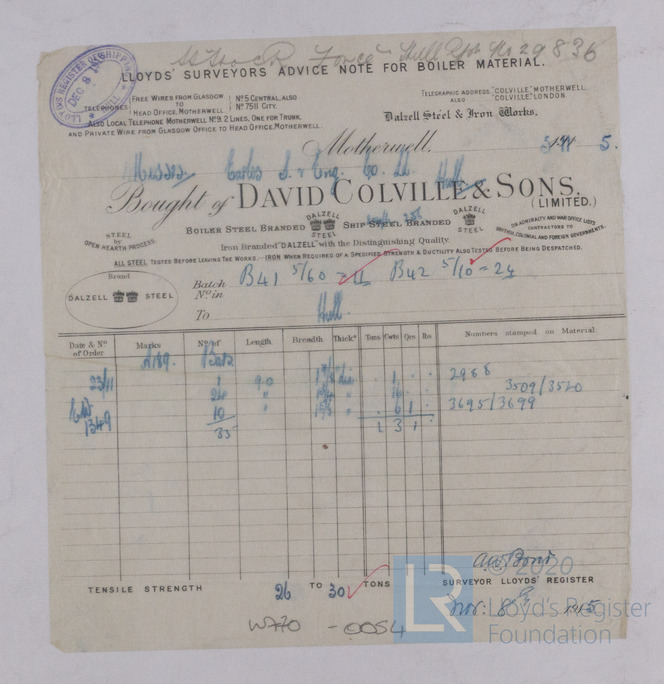 Hull Rpt No 29836
LLOYDS' SURVEYORS ADVICE NOTE FOR BOILER MATERIAL.
LLOYD'S REGISTER OF SHIPPING
DEC 8
TELEPHONES
FREE WIRES FROM GLASGOW
TO
HEAD OFFICE, MOTHERWELL.
No 5 CENTRAL, ALSO
No 7511 CITY.
ALSO LOCAL TELEPHONE MOTHERWELL No 9. 2 LINES, ONE FOR TRUNK,
AND PRIVATE WIRE FROM GLASGOW OFFICE TO HEAD OFFICE, MOTHERWELL.
TELEGRAPHIC ADDRESS "COLVILLE" MOTHERWELL.
ALSO "COLVILLE" LONDON.
Dalzell Steel & Iron Works.
Motherwell,
5.
Messrs Earles S. & Eng. Co. Ld. Hull
Bought of DAVID COLVILLE & SONS.
(LIMITED.)
STEEL
by
OPEN HEARTH PROCESS.
BOILER STEEL BRANDED DALZELL STEEL SHIP STEEL BRANDED DALZELL STEEL
ON ADMIRALTY AND WAR OFFICE LISTS
CONTRACTORS TO
BRITISH, COLONIAL AND FOREIGN GOVERNMENTS.
Iron Branded "DALZELL" with the Distinguishing Quality.
ALL STEEL TESTED BEFORE LEAVING THE WORKS.—IRON WHEN REQUIRED OF A SPECIFIED STRENGTH & DUCTILITY ALSO TESTED BEFORE BEING DESPATCHED.
Brand
DALZELL STEEL
Batch
Nos in
B41 5/60 = 11 B42 5/10 = 24
To Hull.
Date & No
of Order
Marks
No of
Length
Breadth
Thickss
Tons
Cwts
Qrs
lbs
Numbers stamped on Material.
Bars
23/11 1 9.0 1 2988
24 " " 3509/3520
1349 10 " " 6 1 3695/3699
35 1 3 1
TENSILE STRENGTH 26 TO 30 TONS
A.W. Bond
SURVEYOR LLOYDS' REGISTER
W770 - 0054
LR
© 2020
Lloyd's Register
Foundation